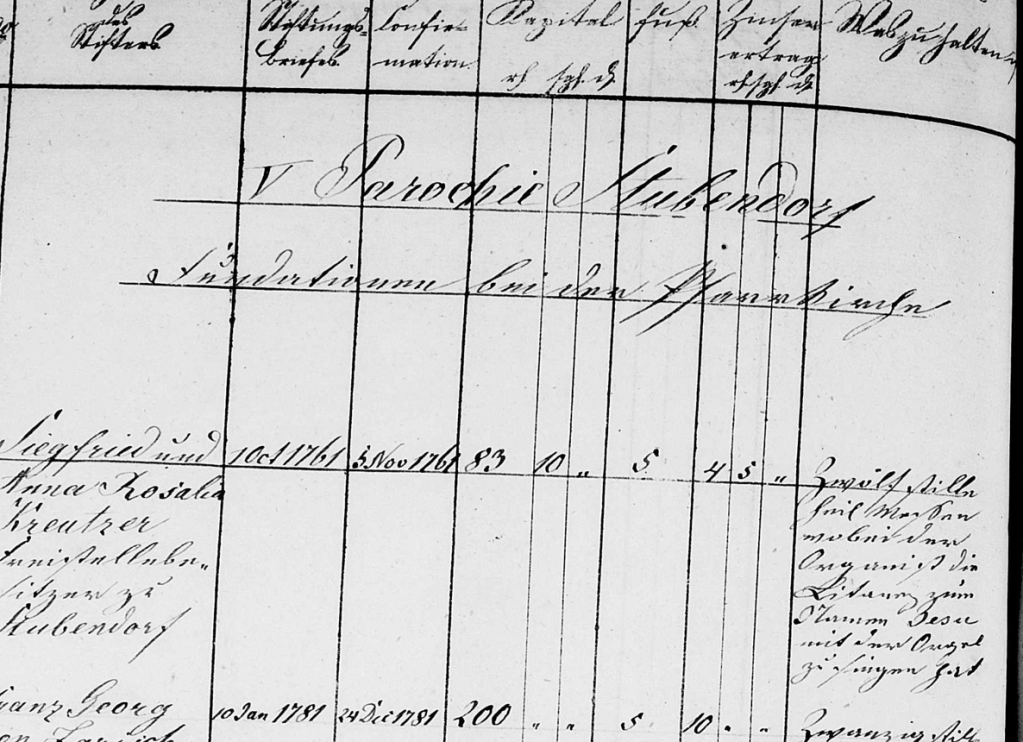 des Stifters
Stiftungs-Briefes
Confir-mation
Kapital
rh sgl d
Fuß
Zinsen ertrag
rh sgl d
Was zu halten
V Parochie Stubendorf
Fundationen bei der Pfarrkirche
Siegfried und 1 Oct 1761 5 Nov 1761 83 10 „ 5 4 5 „ Zwölf stille
Anna Rosalia heil Messen
Kreutzer wobei der
Freistellebe„ Organist die
sitzer zu Litaney zum
Stubendorf Namen Jesu
mit der Orgel
zu singen hat
Franz Georg 10 Jan 1781 24 Dec 1781 200 „ „ 5 10 „ „ Zwanzig still